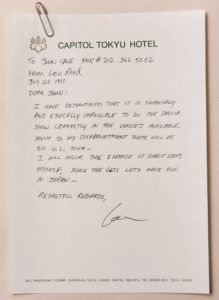 CAPITOL TOKYU HOTEL
TO JOHN CALE FAX # 212 366 5056
FROM LOU REED
JULY 24 1990
DEAR JOHN:
I HAVE DETERMINED THAT IT IS FINANCIALLY
AND ETHICALLY IMPOSSIBLE TO DO THE DRELLA
SHOW CORRECTLY IN THE VENUES AVAILABLE.
MUCH TO MY DISAPPOINTMENT THERE WILL BE
NO U.S. TOUR —
I WILL INCUR THE EXPENSE OF
MYSELF. NONE THE LESS LETS HAVE FUN
IN JAPAN —
REGRETFUL REGARDS,
Lou